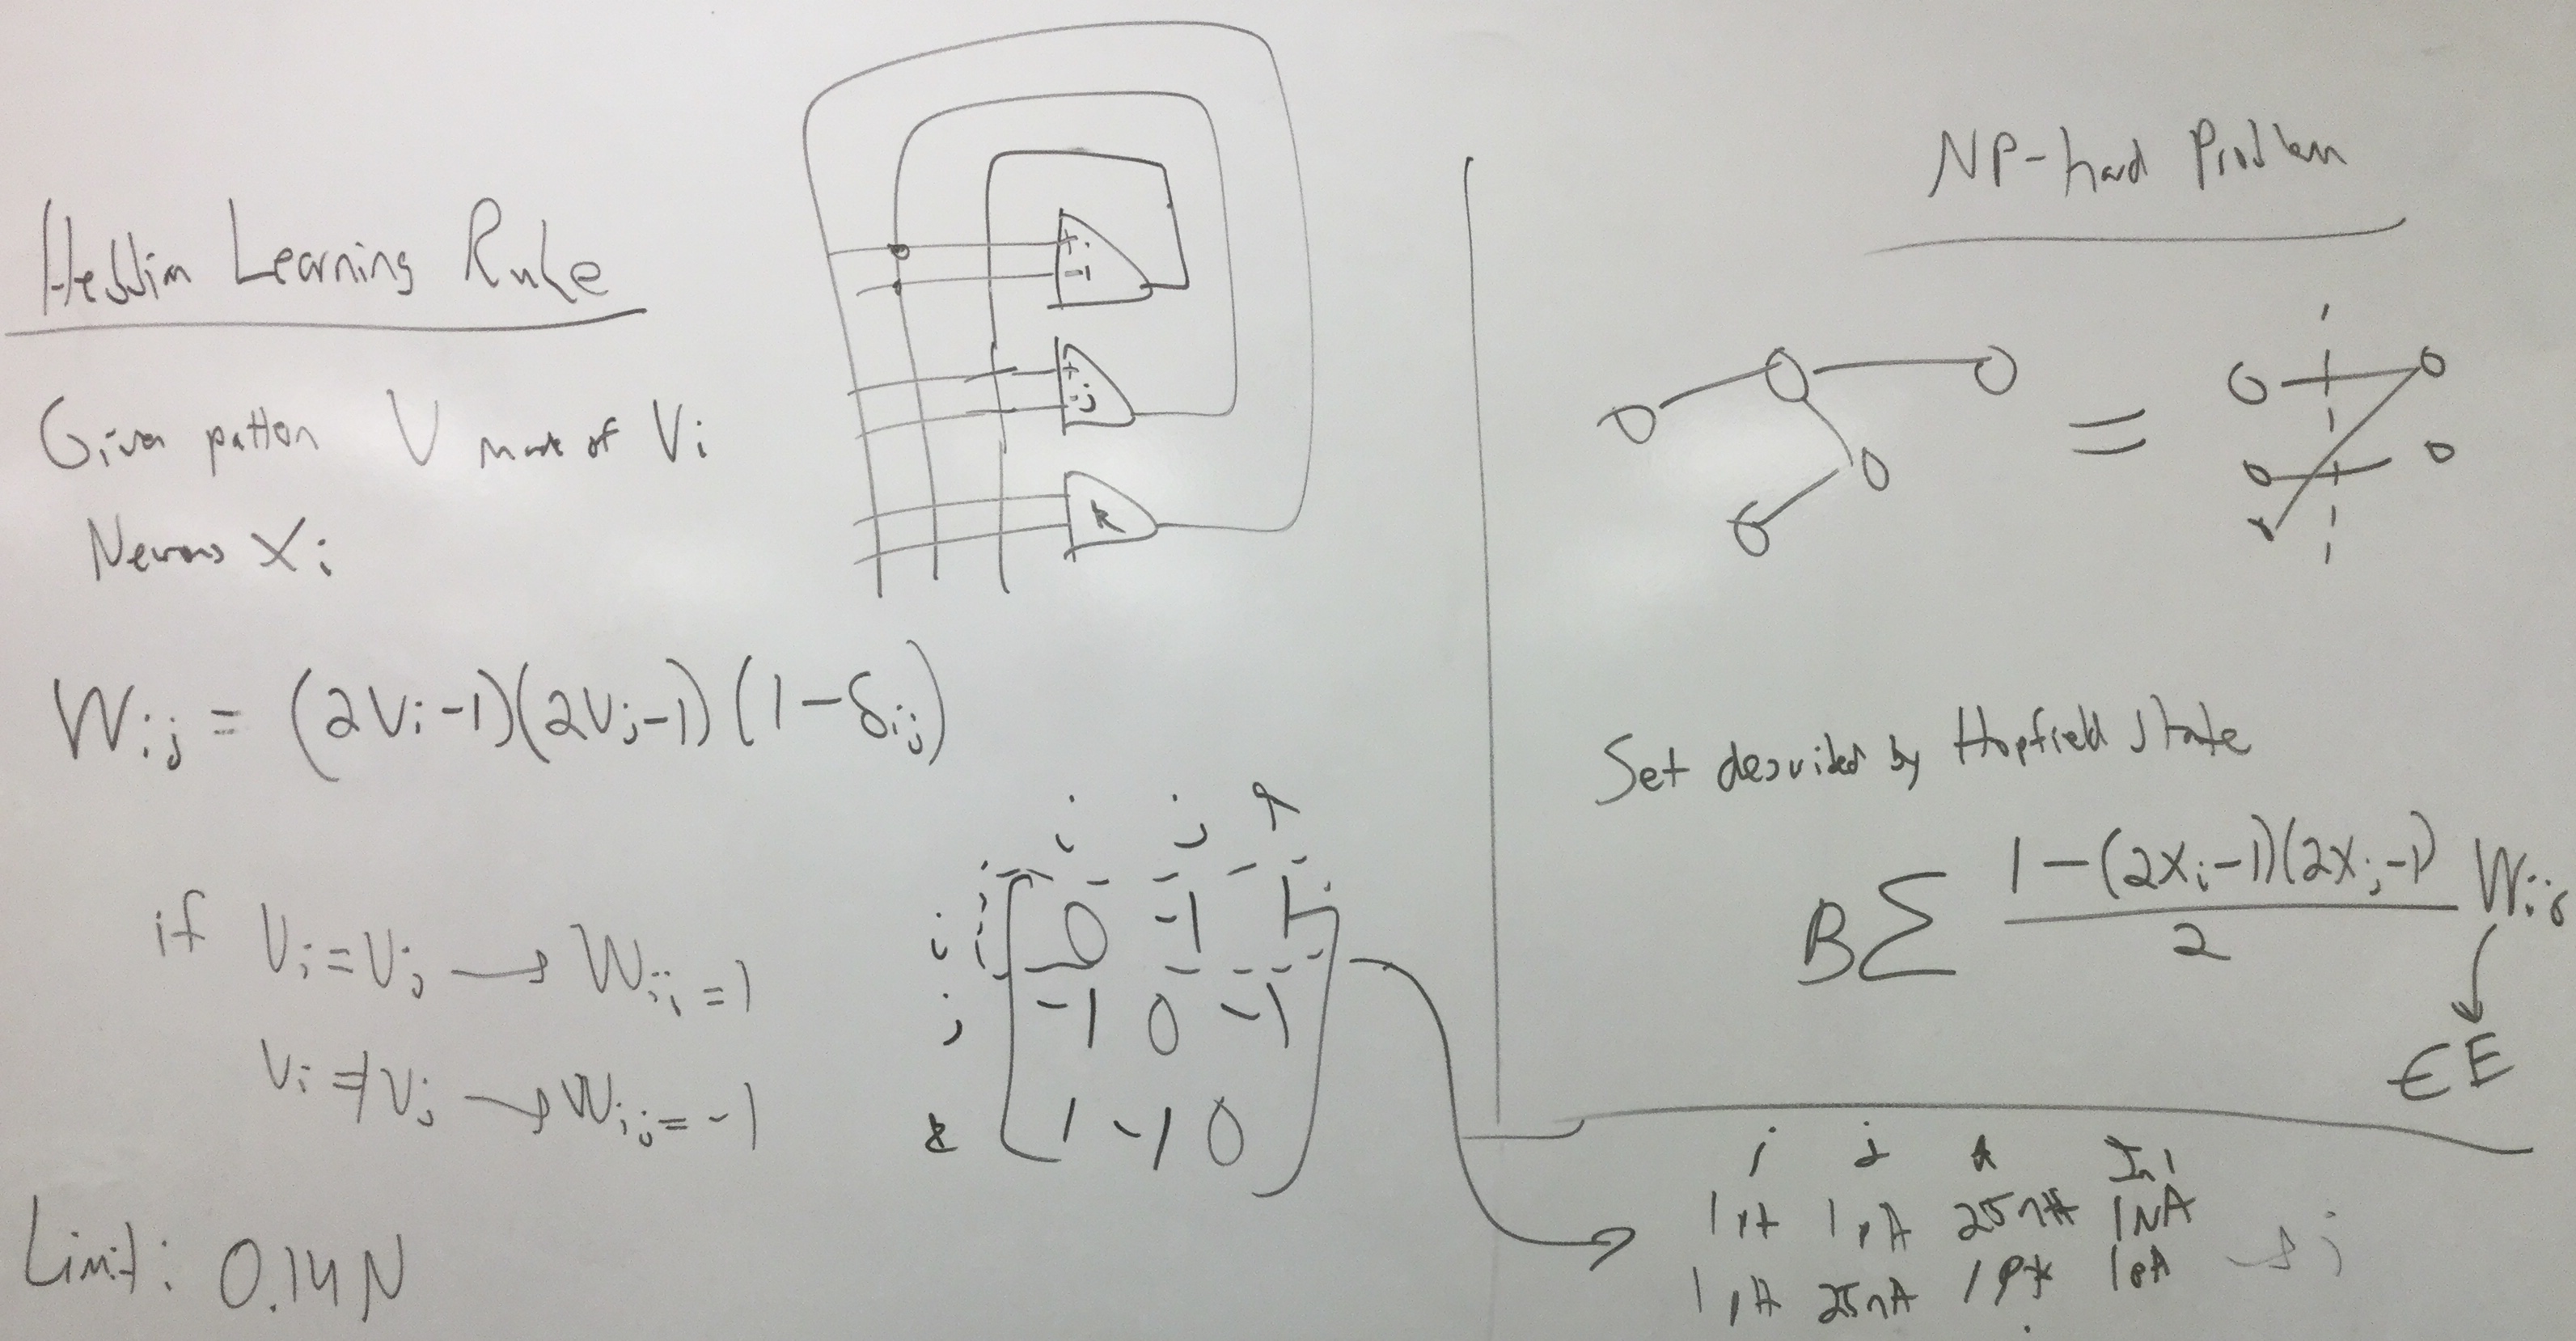 Hebbian Learning Rule
Given pattern V made of Vi
Neurons Xi
Wij = (2Vi-1)(2Vj-1)(1-δij)
if Vi=Vj → Wij=1
Vi≠Vj → Wij=-1
Limit: 0.14N
+ i
-
+ j
-
k
i j k
i 0 -1 1
j -1 0 -1
k 1 -1 0
NP-hard Problem
=
Set described by Hopfield State
B∑ 1-(2Xi-1)(2Xj-1) / 2 Wij
↓
∈E
i j k In1
1pA 1pA 25nA 1nA
1pA 25nA 1pA 1pA → i